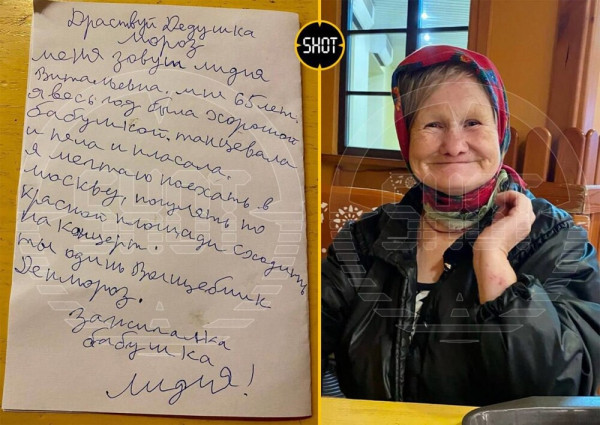 Драствуй Дедушка
Мороз
меня зовут лидия
Витальевна. мне 65 лет.
я весь год была хорошой
бабушкой. танцевала
и пела и плясала.
я мечтаю поехать в
москву, погулять по
красной площади сходить
на концерт.
ты один Волшебник
Дедмороз.
зажигалка
бабушка
лидия!
SHOT